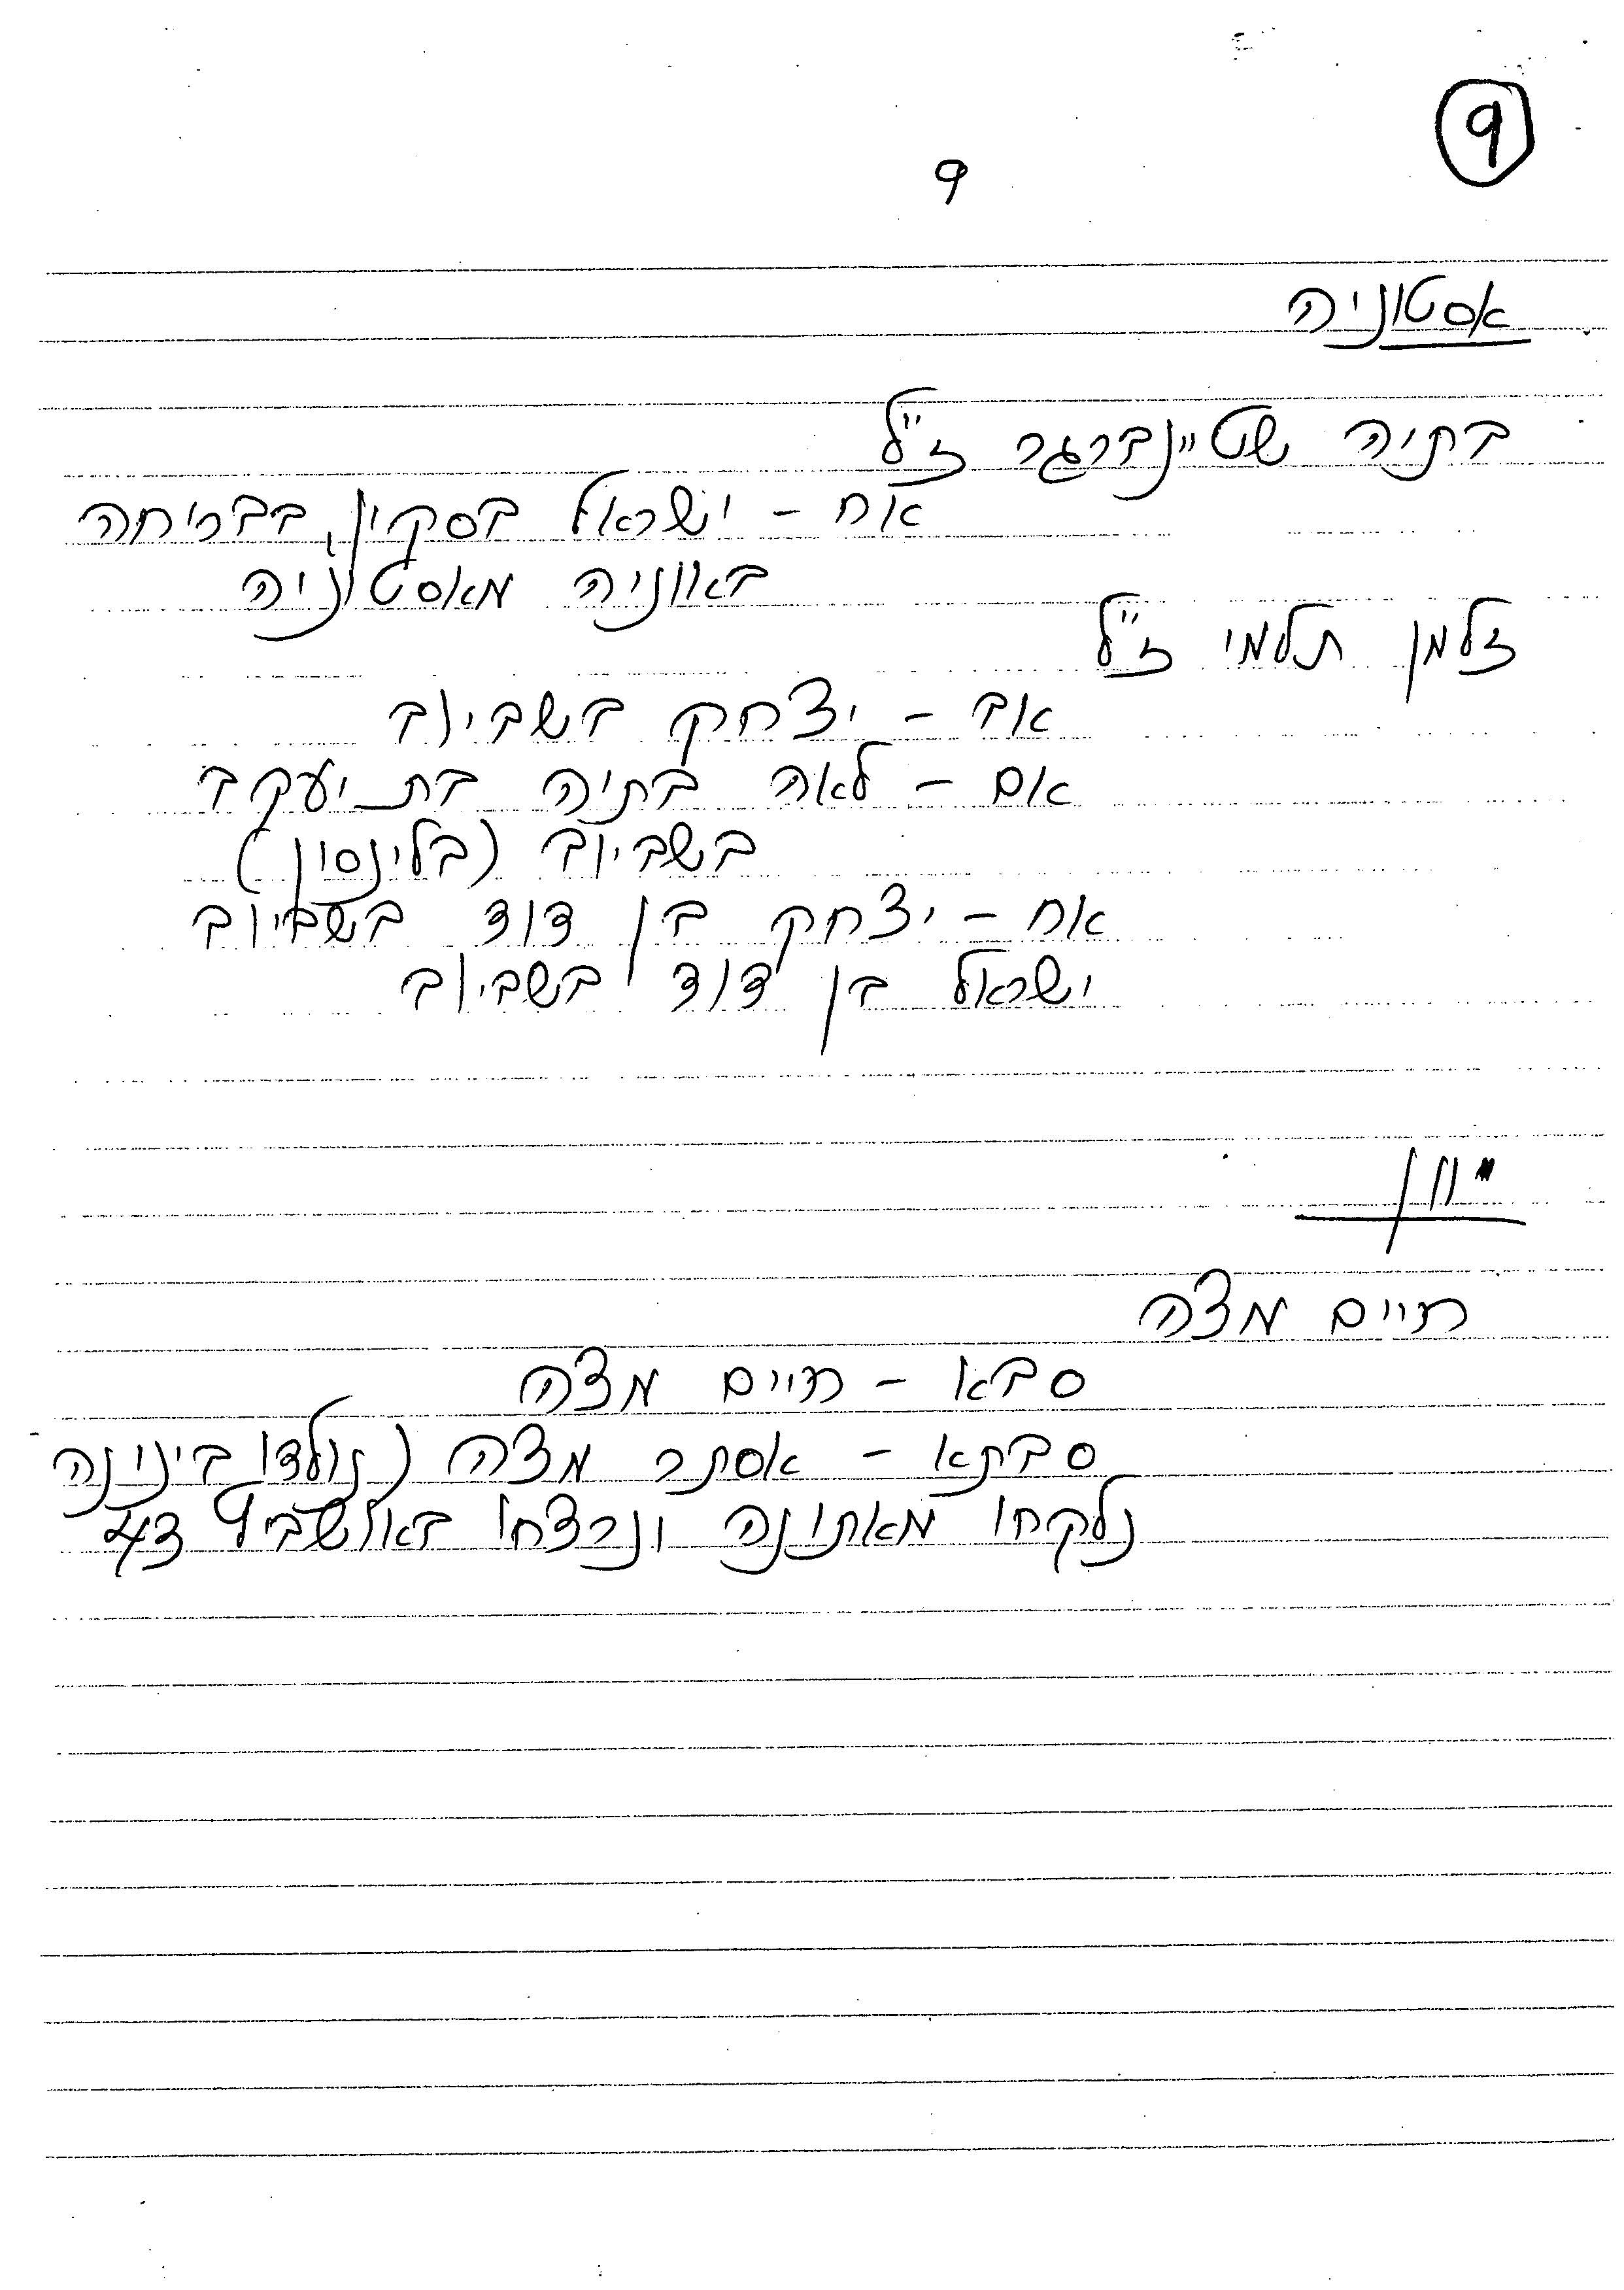 9
9
אסטוניה
בתיה שטיינברגר ז"ל
אח - ישראל בסקין, בבריחה
באוניה מאסטוניה
זלמן תלמי ז"ל
אב - יצחק בשביוב
אם - לאה בתיה בת יעקב
בשביוב (בלינסון)
אח - יצחק בן דוד בשביוב
ישראל בן דוד בשביוב
יוון
חיים מצה
סבא - חיים מצה
סבתא - אסתר מצה (נולדו בינינה
נלקחו מאתונה ונרצחו באושביץ 43